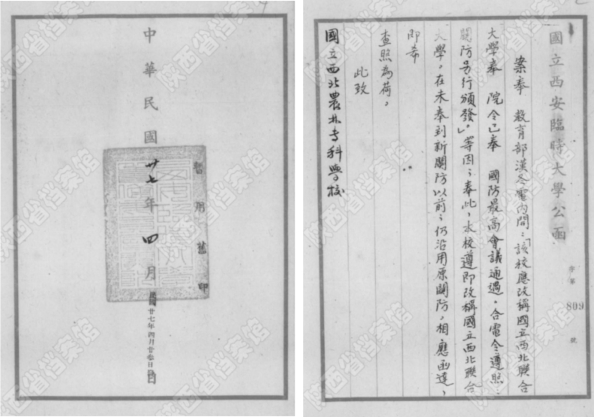 國立西安臨時大學公函
字第
809
號
案奉 教育部漢 電內開：「該校應改稱國立西北聯合
大學奉 院令已奉 國防最高會議通過。合電令遵照。
關防另行頒發」。等因；奉此，本校遵即改稱國立西北聯合
大學。在未奉到新關防以前，仍沿用原關防，相應函達，
即希
查照為荷。
此致
國立西北農林專科學校
中華民國廿七年四月
暫用舊印
國廿七年四月廿 日
陕西省档案馆